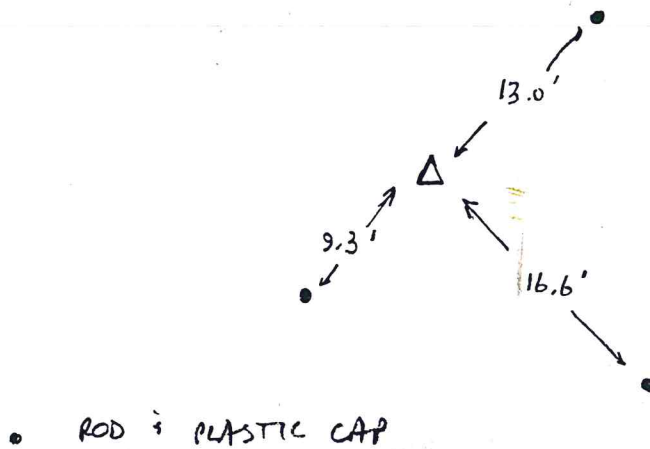 13.0'
9.3'
16.6'
ROD & PLASTIC CAP